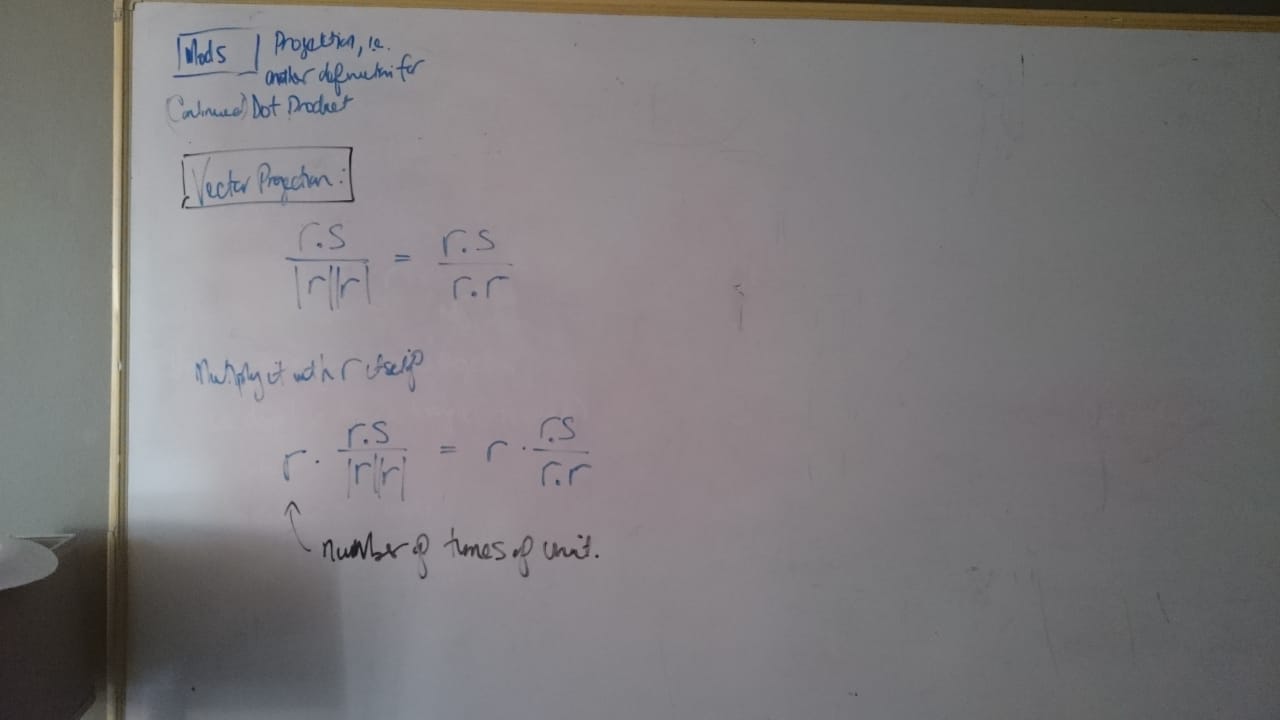 Mods | Projection, i.e.
another definition for
(Continued) Dot Product
Vector Projection:
r.s / |r||r| = r.s / r.r
Multiply it with r itself
r · r.s / |r||r| = r · r.s / r.r
number of times of unit.